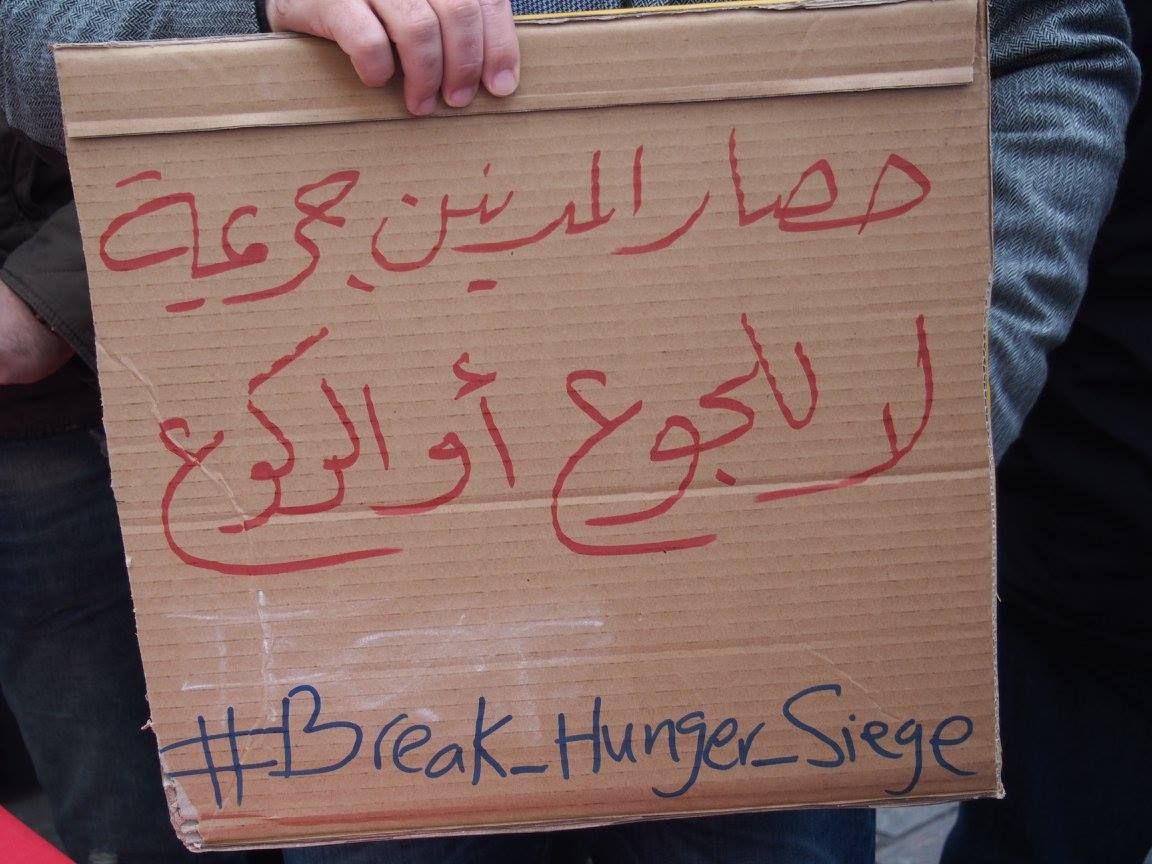 حصار المدنيين جريمة
لا للجوع أو الركوع
#Break_Hunger_Siege